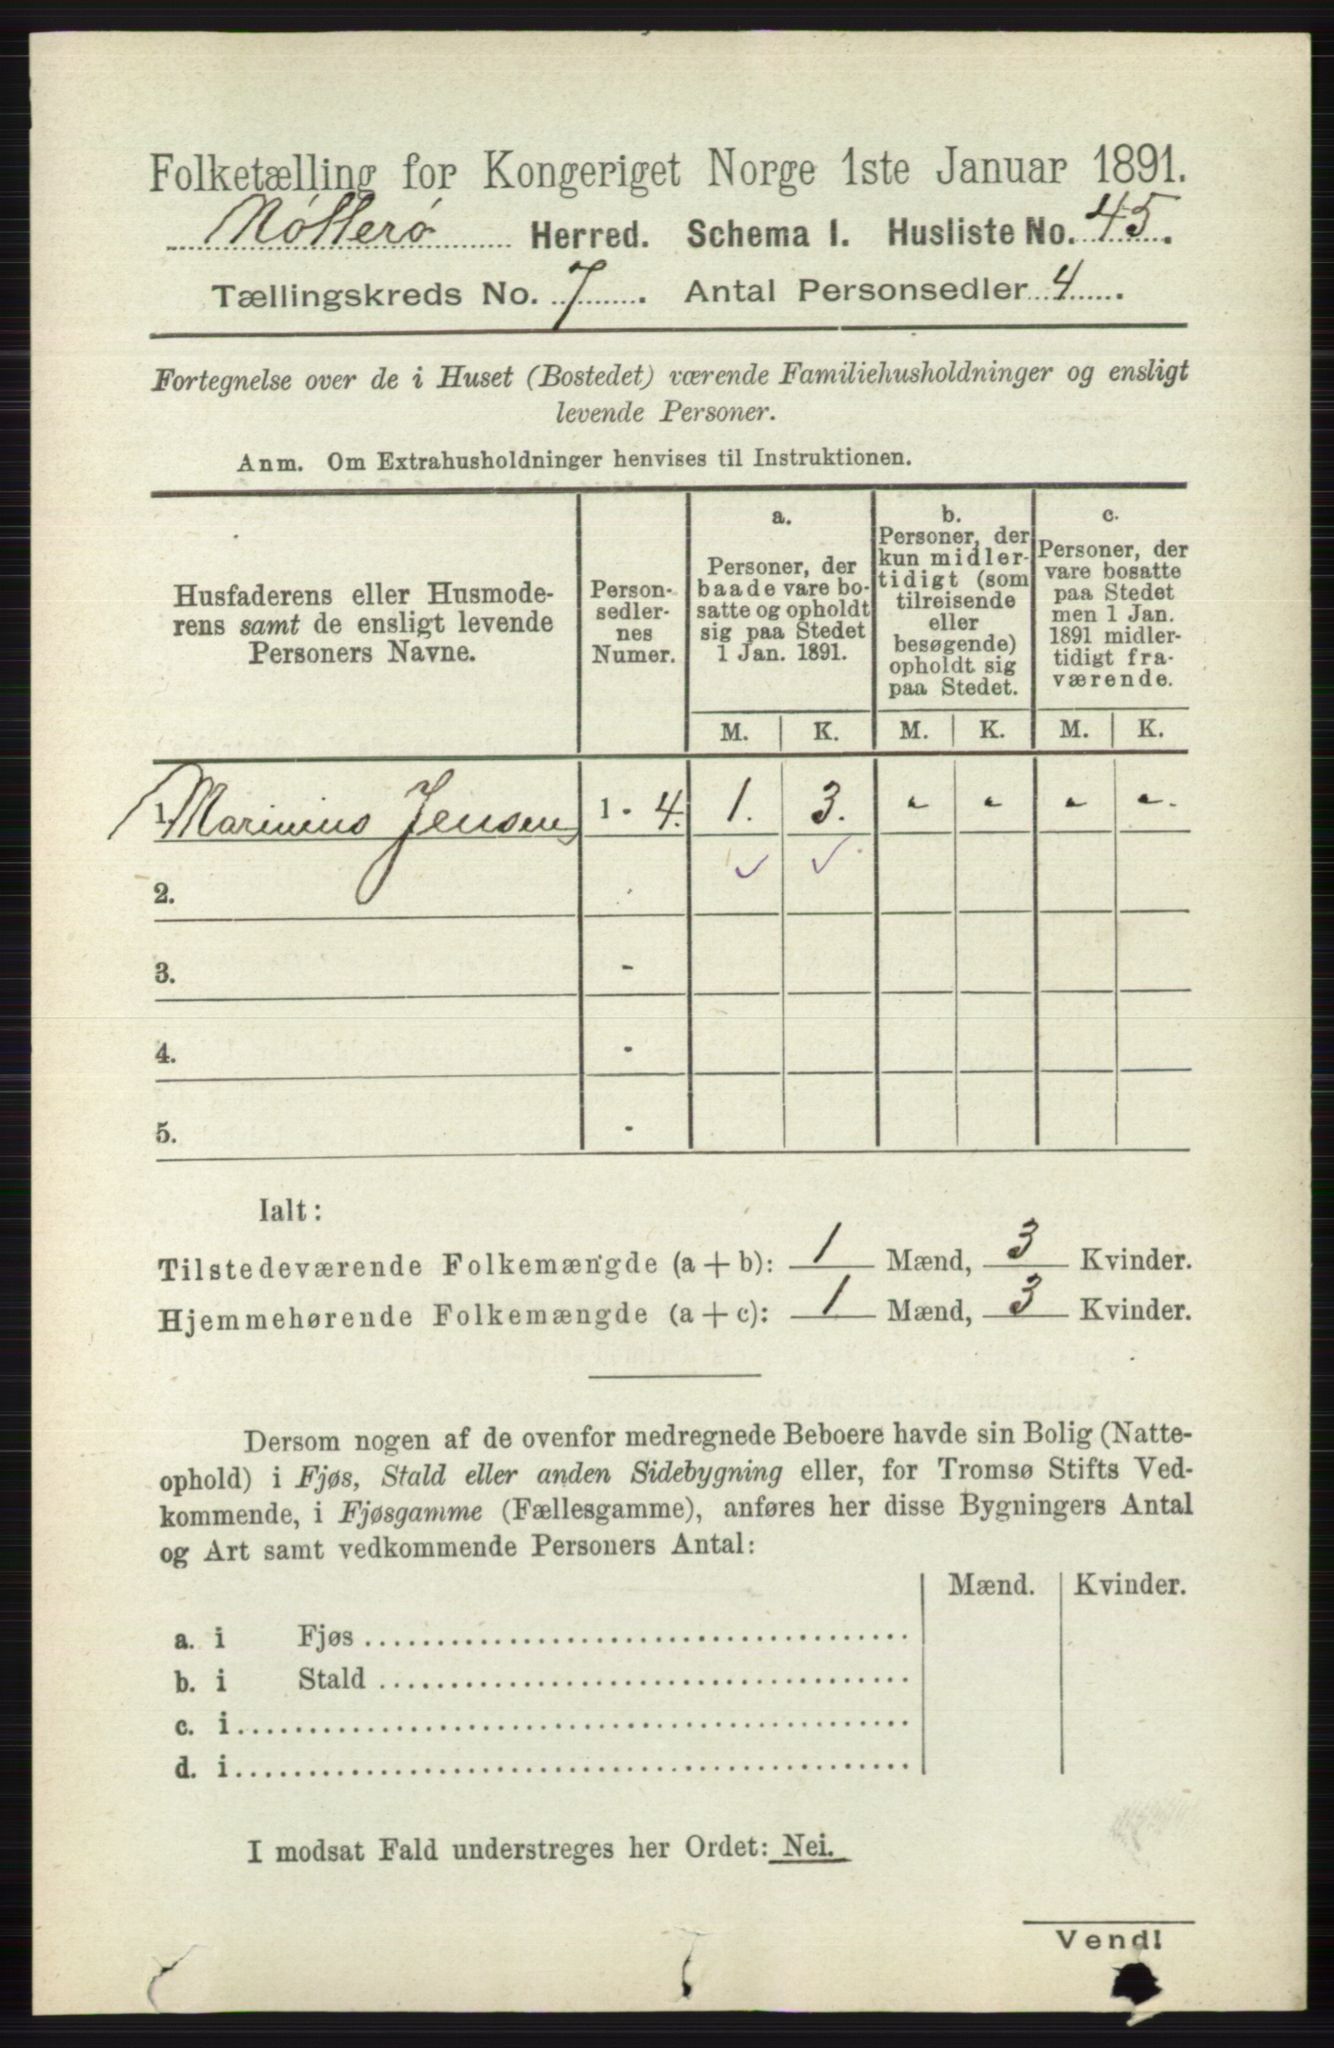 Folketælling for Kongeriget Norge 1ste Januar 1891.
Nøtterø Herred. Schema I. Husliste No. 45.
Tællingskreds No. 7. Antal Personsedler 4.
Fortegnelse over de i Huset (Bostedet) værende Familiehusholdninger og ensligt
levende Personer.
Anm. Om Extrahusholdninger henvises til Instruktionen.
Husfaderens eller Husmode-
rens samt de ensligt levende
Personers Navne.
Person-
sedler-
nes
Numer.
a.
Personer, der
baade vare bo-
satte og opholdt
sig paa Stedet
1 Jan. 1891.
b.
Personer, der
kun midler-
tidigt (som
tilreisende
eller
besøgende)
opholdt sig
paa Stedet.
c.
Personer, der
vare bosatte
paa Stedet
men 1 Jan.
1891 midler-
tidigt fra-
værende.
M. K. M. K. M. K.
1. Marinius Jensen 1 - 4. 1. 3. " " " ".
2.
3. -
4. -
5. -
Ialt:
Tilstedeværende Folkemængde (a + b): 1 Mænd, 3 Kvinder.
Hjemmehørende Folkemængde (a + c): 1 Mænd, 3 Kvinder.
Dersom nogen af de ovenfor medregnede Beboere havde sin Bolig (Natte-
ophold) i Fjøs, Stald eller anden Sidebygning eller, for Tromsø Stifts Ved-
kommende, i Fjøsgamme (Fællesgamme), anføres her disse Bygningers Antal
og Art samt vedkommende Personers Antal:
Mænd. Kvinder.
a. i Fjøs
b. i Stald
c. i
d. i
I modsat Fald understreges her Ordet: Nei.
Vend!